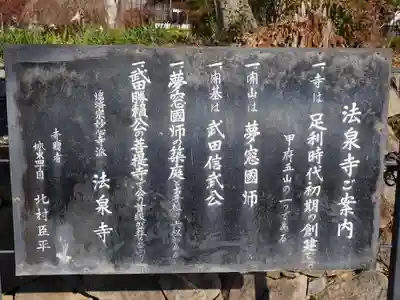 法泉寺ご案内
一寺は 足利時代初期の創建で
甲府五山の一つである
一開山は 夢窓國師
一開基は 武田信武公
一夢窓國師の築庭
一武田勝頼公の菩提寺で
臨済宗妙心寺派 法泉寺
寄贈者
城東四丁目 北村臣平